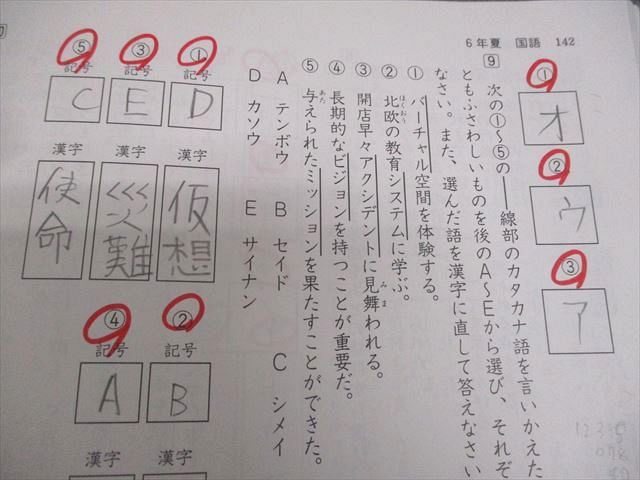 6年夏 国語 142
① オ
② ウ
③ ア
9 次の①〜⑤の――線部のカタカナ語を言いかえた
ともふさわしいものを後のA〜Eから選び、それぞ
なさい。また、選んだ語を漢字に直して答えなさい
① バーチャル空間を体験する。
② 北欧の教育システムに学ぶ。
ほくおう
③ 開店早々アクシデントに見舞われる。
みま
④ 長期的なビジョンを持つことが重要だ。
⑤ 与えられたミッションを果たすことができた。
あた
A テンボウ B セイド C シメイ
D カソウ E サイナン
① 記号 D
漢字 仮想
③ 記号 E
漢字 災難
⑤ 記号 C
漢字 使命
② 記号 B
漢字
④ 記号 A
漢字